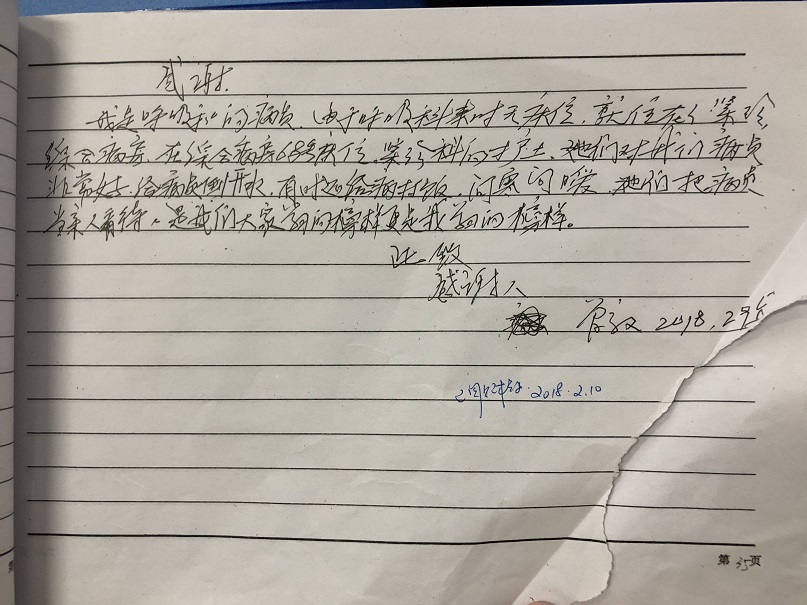 感谢
我是呼吸科的病员,由于呼吸科来时无床位,就住在了
综合病房.在综合病房68号床位.科的护士.她们对我们病员
非常好.给病员倒开水,有时还给病打饭,问寒问暖 她们把病员
当亲人看待,是我们大家学习的榜样更是我学习的榜样。
此致
感谢人
2018.2
2018.2.10
第35页